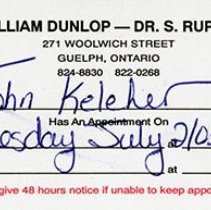 LLIAM DUNLOP — DR. S. RUP
271 WOOLWICH STREET
GUELPH, ONTARIO
824-8830 822-0268
John Keleher
Has An Appointment On
osday July 2/0
at
give 48 hours notice if unable to keep appo